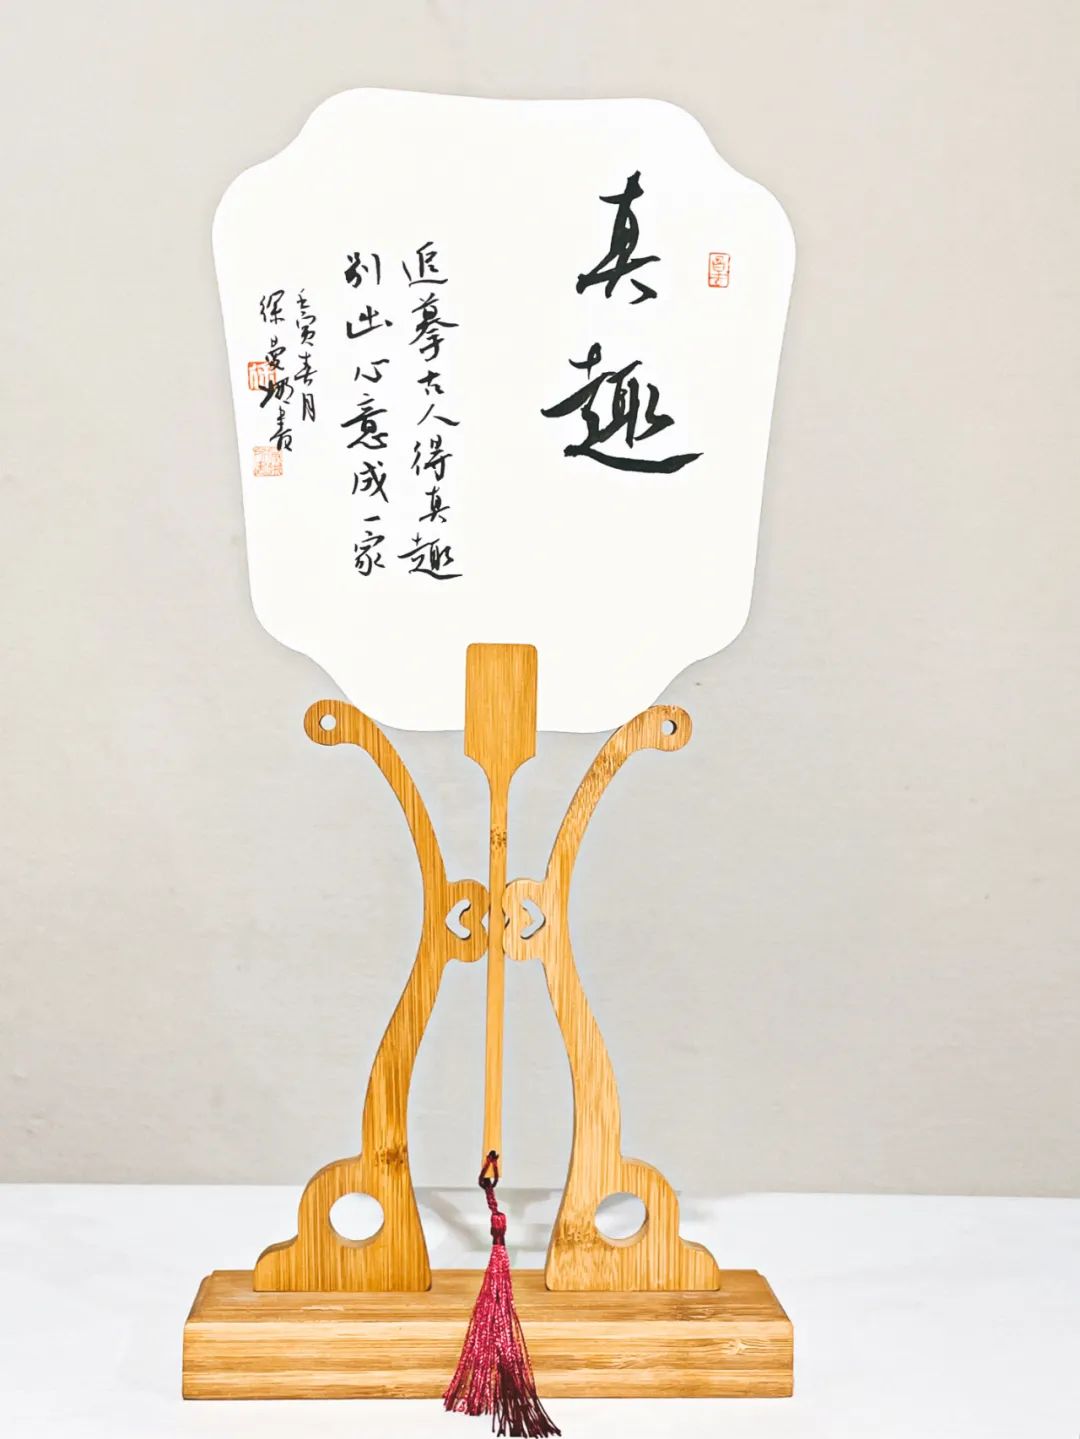 真趣
追摹古人得真趣
别出心意成一家
壬寅春月
徐曼娜书